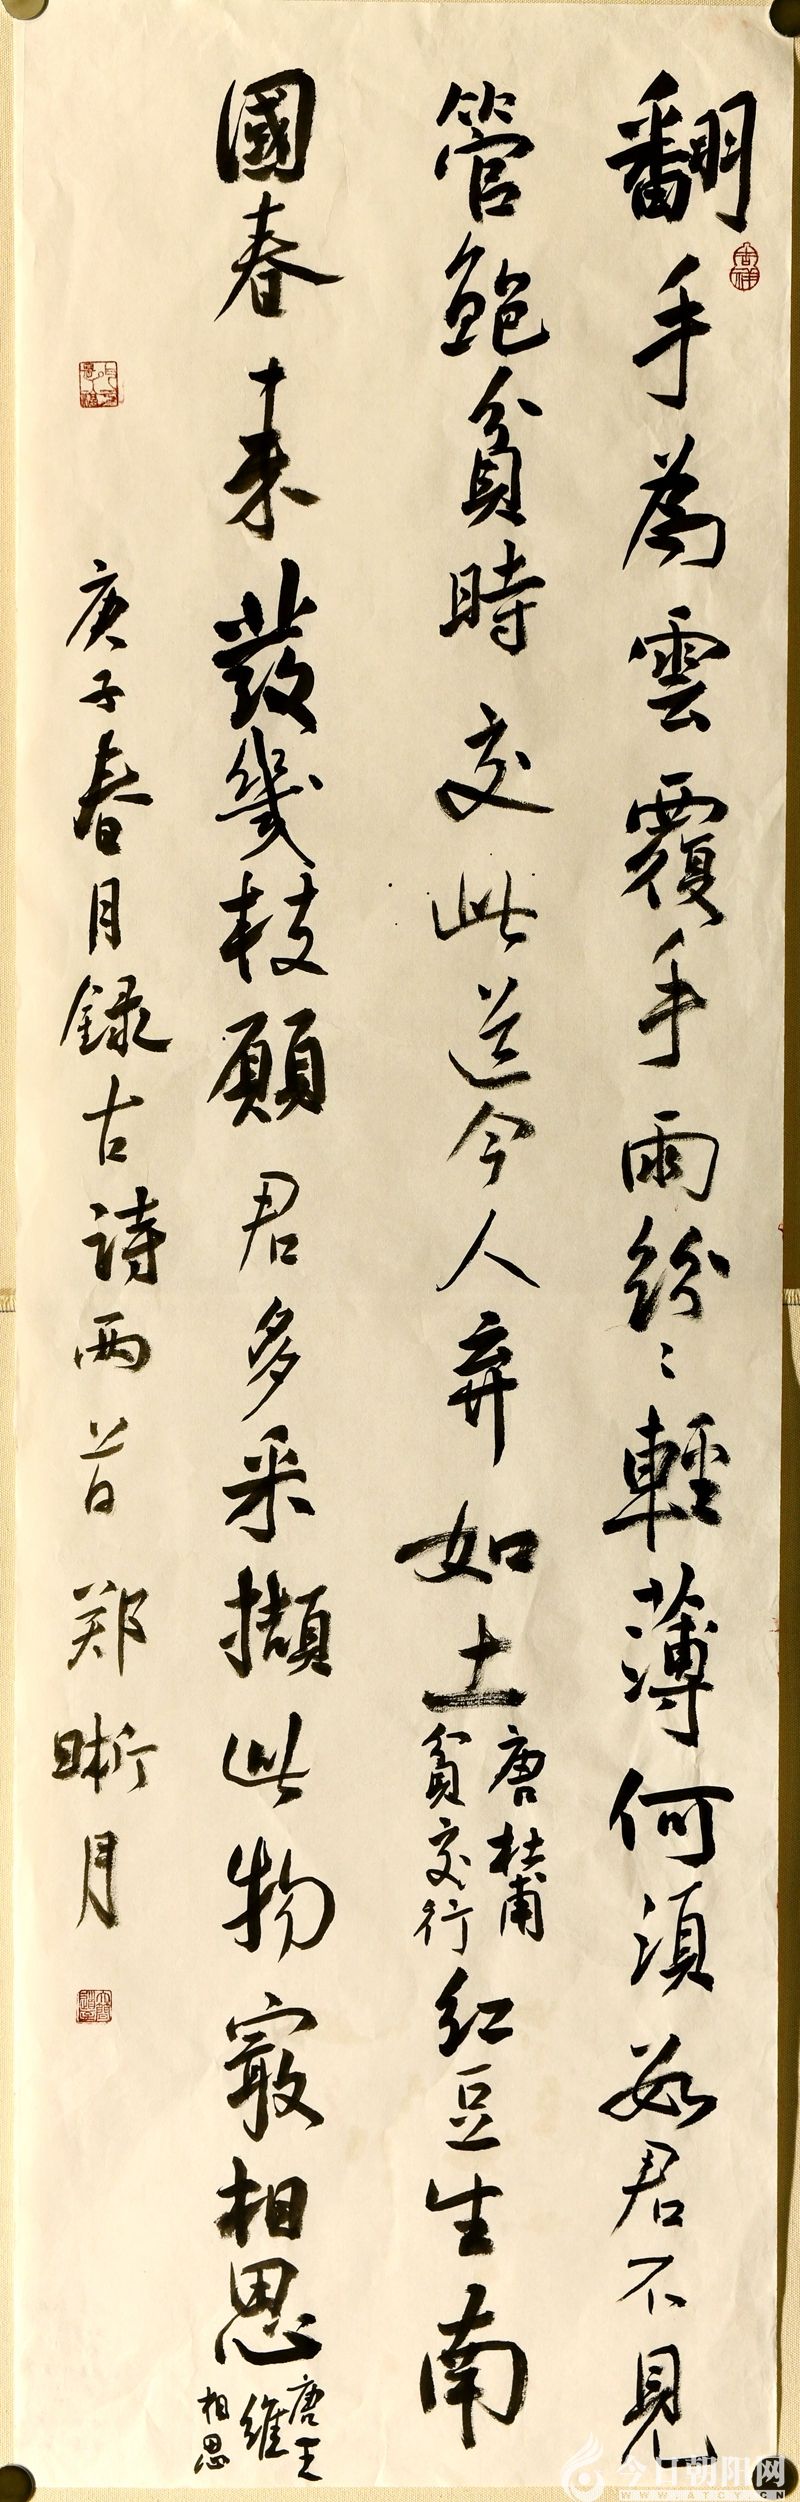 翻手為雲覆手雨紛〻輕薄何須數君不見
管鮑貧時交此道今人弃如土
唐杜甫
貧交行
紅豆生南
國春来發幾枝願君多采擷此物寂相思
唐王維
相思
庚子春月録古詩两首郑晰月
吉祥
今日朝阳网
WWW.ATCY.CN